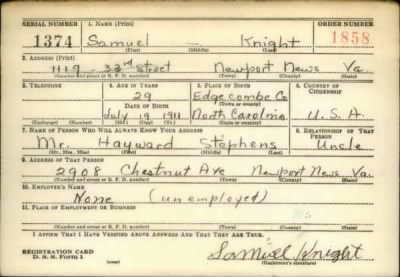 SERIAL NUMBER 1. NAME (Print) ORDER NUMBER
1374 Samuel — Knight 1858
(First) (Middle) (Last)
2. ADDRESS (Print)
1119 - 33rd Street Newport News Va.
(Number and street or R. F. D. number) (Town) (County) (State)
3. TELEPHONE 4. AGE IN YEARS 5. PLACE OF BIRTH 6. COUNTRY OF CITIZENSHIP
29 Edgecombe Co
DATE OF BIRTH (Town or county)
July 19 1911 North Carolina U.S.A.
(Exchange) (Number) (Mo.) (Day) (Yr.) (State or country)
7. NAME OF PERSON WHO WILL ALWAYS KNOW YOUR ADDRESS 8. RELATIONSHIP OF THAT PERSON
Mr. Hayward Stephens Uncle
(Mr., Mrs., Miss) (First) (Middle) (Last)
9. ADDRESS OF THAT PERSON
2908 Chestnut Ave Newport News Va.
(Number and street or R. F. D. number) (Town) (County) (State)
10. EMPLOYER'S NAME
None (unemployed)
11. PLACE OF EMPLOYMENT OR BUSINESS
(Number and street or R. F. D. number) (Town) (County) (State)
I AFFIRM THAT I HAVE VERIFIED ABOVE ANSWERS AND THAT THEY ARE TRUE.
REGISTRATION CARD
D. S. S. Form 1 (over) Samuel Knight
(Registrant's signature)